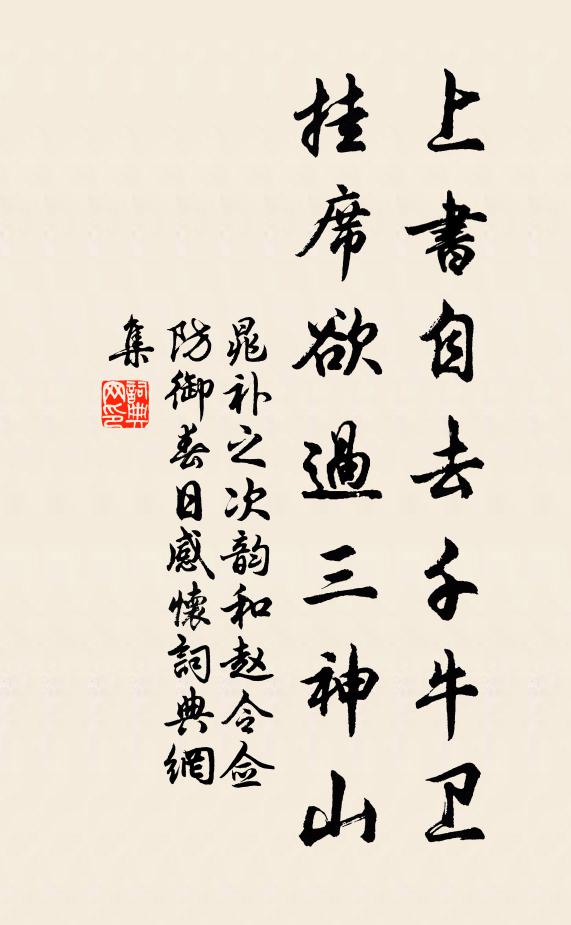 上書自去千牛卫
挂席欲過三神山
晁补之次韵和赵令佥
防御春日感懷詞典網
集
詞典網印